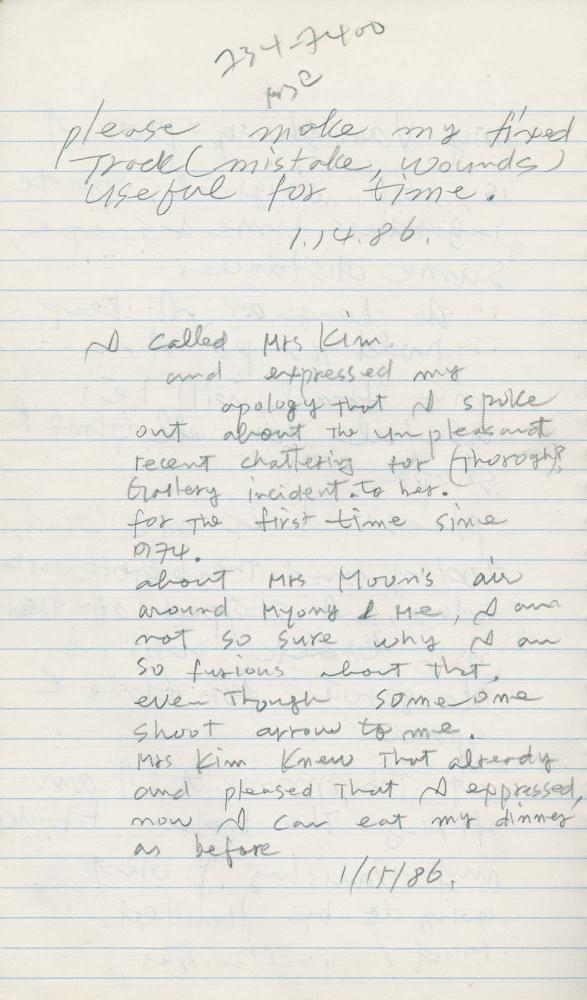 734-7400
please make my fixed
Track (mistake, wounds)
useful for time.
1.14.86.
I called Mrs Kim.
and expressed my
apology that I spoke
out about The unpleasant
recent chattering for (Thorogh)?
Gallery incident. to her.
for The first time since
1974.
about Mrs Moon's air
around Myong & Me, I am
not so sure why I am
so furious about that,
even Though someone
shoot arrow to me.
Mrs Kim Knew That already
and pleased That I expressed,
now I can eat my dinner
as before.
1/15/86.